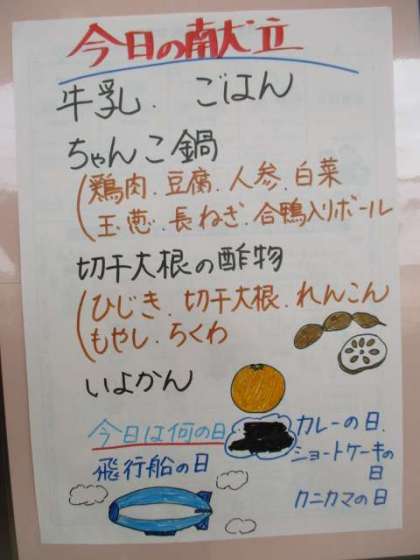 今日の献立
牛乳．ごはん
ちゃんこ鍋
(鶏肉．豆腐．人参．白菜
玉葱．長ねぎ．合鴨入りボール
切干大根の酢物
(ひじき．切干大根．れんこん
もやし．ちくわ
いよかん
今日は何の日
飛行船の日
カレーの日．
ショートケーキの
日
カニカマの日